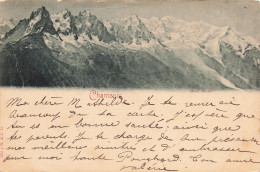 Chamonix
Ma chère Mathilde. Je te remercie
beaucoup de ta carte, j'espère que
tu es en bonne santé, ainsi que
tes parents. Je te charge de leur présenter
mes meilleures amitiés et d'embrasser
pour moi Ton amie
Valérie